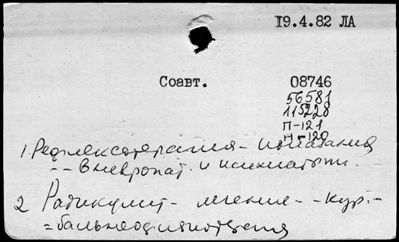 19.4.82 ЛА
Соавт.
08746
56581
115228
П-121
Н-120
1. Рефлексотерапия -
-- в невропат. и психиатрии.
2 Радикулит - лечение - - кур.-
= бальнеофизиотерапия